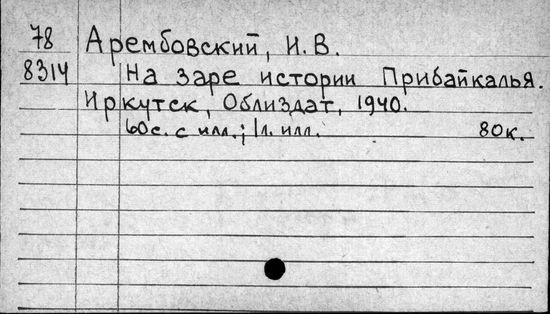 78 Арембовский, И.В.
8314 На заре истории Прибайкалья.
Иркутск, Облиздат, 1940.
60с. с илл.; 1л. илл. 80к.